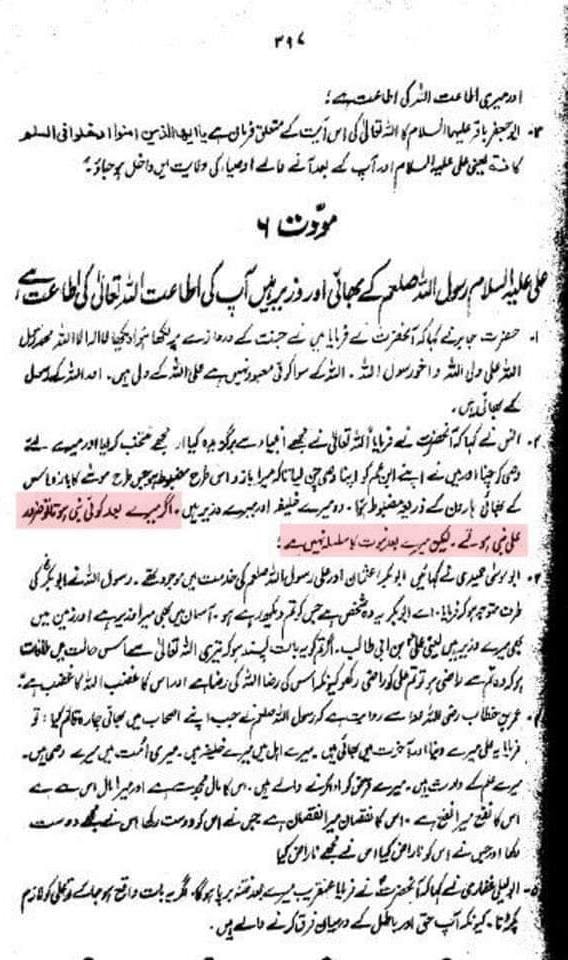 ۳۹۷
اور میری اطاعت اللہ کی اطاعت ہے؛
۳۔ ابو جعفر باقر علیہا السلام کا اللہ تعالیٰ کی اس آیت کے متعلق فرمان ہے یا ایہا الذین امنوا ادخلوا فی السلم
کافۃ یعنی علی علیہ السلام اور آپ کے بعد آنے والے اوصیاء کی ولایت میں داخل ہو جاؤ۔
مودّت ۶
علی علیہ السلام رسول اللہ صلعم کے بھائی اور وزیر ہیں آپ کی اطاعت اللہ تعالیٰ کی اطاعت ہے،
۱۔ حضرت جابر نے کہا کہ آنحضرت نے فرمایا میں نے جنت کے دروازے پر لکھا ہوا دیکھا لا الہ الا اللہ محمد رسول
اللہ علی ولی اللہ و اخو رسول اللہ ۔ اللہ کے سوا کوئی معبود نہیں ہے علی اللہ کے ولی ہیں۔ اور اللہ کے رسول
کے بھائی ہیں۔
۲۔ انس نے کہا کہ آنحضرت نے فرمایا اللہ تعالیٰ نے مجھے انبیاء سے برگزیدہ کیا اور مجھے منتخب کر لیا اور میرے لئے
وصی کو چنا اور میں نے اپنے ابن عم کو اپنا وصی چن لیا تاکہ میرا بازو اس طرح مضبوط ہو جس طرح موسیٰ کا بازو اس
کے بھائی ہارون کے ذریعہ مضبوط ہوا۔ وہ میرے خلیفہ اور میرے وزیر ہیں۔ اگر میرے بعد کوئی نبی ہوتا تو ضرور
علی نبی ہوتے۔ لیکن میرے بعد نبوت کا سلسلہ نہیں ہے؛
۳۔ ابو موسیٰ حمیدی نے کہا میں ابوبکر عثمان اور علی رسول اللہ صلعم کی خدمت میں موجود تھے۔ رسول اللہ نے ابوبکر کی
طرف متوجہ ہو کر فرمایا۔ اے ابوبکر یہ وہ شخص ہے جس کو تم دیکھ رہے ہو۔ آسمان میں بھی میرا وزیر ہے اور زمین میں
بھی میرے وزیر ہیں یعنی علی ابن ابی طالب۔ اگر تم کو یہ بات پسند ہو کہ تیری اللہ تعالیٰ سے اس حالت میں ملاقات
ہو کہ وہ تم سے راضی ہو تو تم علی کو راضی رکھو کیونکہ اس کی رضا اللہ کی رضا ہے اور اس کا غضب اللہ کا غضب ہے۔
۴۔ عمر بن خطاب رضی اللہ عنہ سے روایت ہے کہ رسول اللہ صلعم نے جب اپنے اصحاب میں بھائی چارہ قائم کیا؛ تو
فرمایا یہ علی میرے دنیا اور آخرت میں بھائی ہیں۔ میرے اہل میں میرے خلیفہ ہیں۔ میری امت میں میرے وصی ہیں۔
میرے علم کے وارث ہیں۔ میرے قرض کو ادا کرنے والے ہیں۔ اس کا مال مجھ سے ہے اور میرا مال اس سے ہے
اس کا نفع میرا نفع ہے۔ اس کا نقصان میرا نقصان ہے جس نے اس کو دوست رکھا اس نے مجھے دوست
رکھا اور جس نے اس کو ناراض کیا اس نے مجھے ناراض کیا
۵۔ ابو لیلیٰ غفاری نے کہا کہ آنحضرت نے فرمایا عنقریب میرے بعد فتنہ برپا ہو گا۔ اگر یہ بات واقع ہو جائے تو علی کو لازم
پکڑنا۔ کیونکہ آپ حق اور باطل کے درمیان فرق کرنے والے ہیں۔